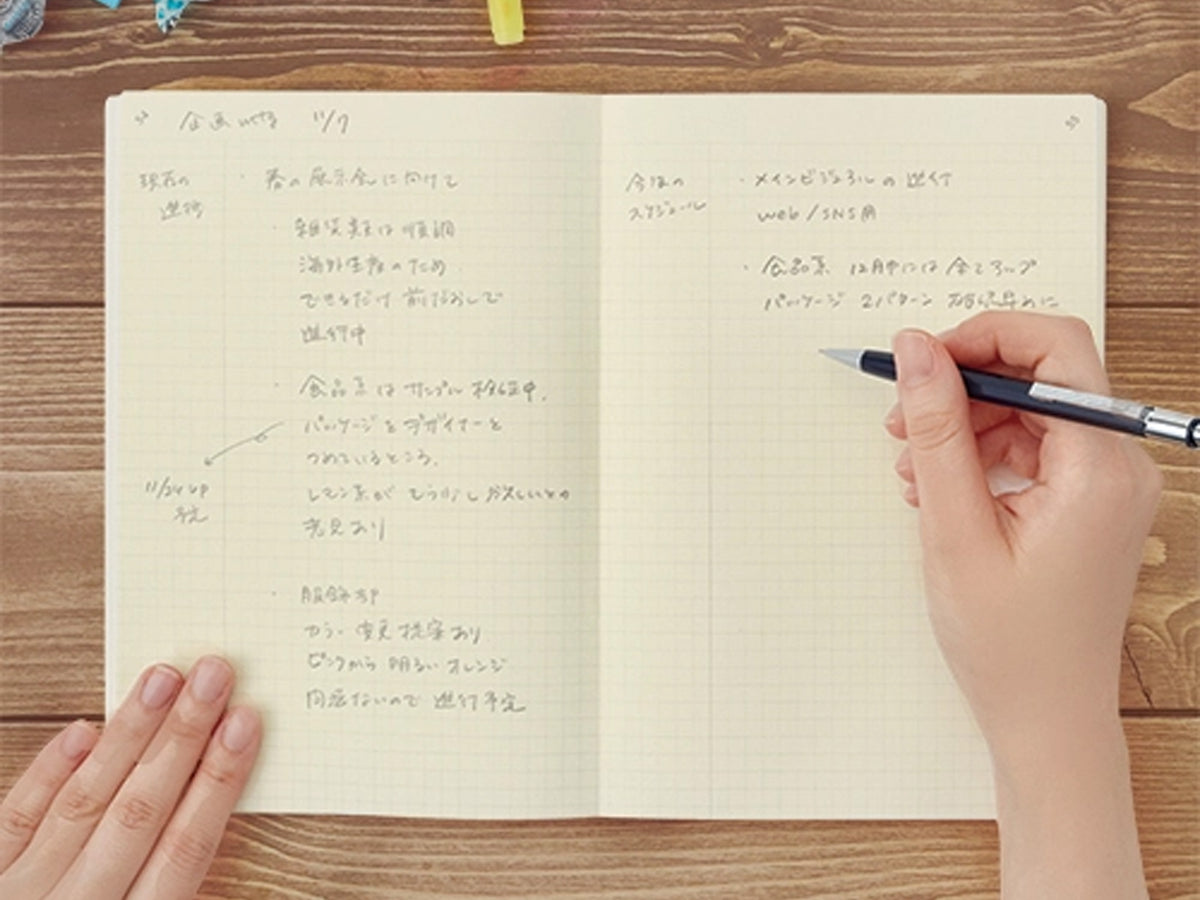 企画 mtg 11/7
現在の
進行
・春の展示会に向けて
・雑貨類は順調
海外生産のため
できるだけ前だおしで
進行中
・食品系はサンプル検証中。
パッケージをデザイナーと
つめているところ。
11/24 up
予定
レモン系がもう少し欲しいとの
意見あり
・服飾部
カラー変更提案あり
ピンクから明るいオレンジ
問題ないので進行予定
今後の
スケジュール
・メインビジュアルの進行
web/SNS用
・食品系 12月中には全てアップ
パッケージ 2パターン 早めに